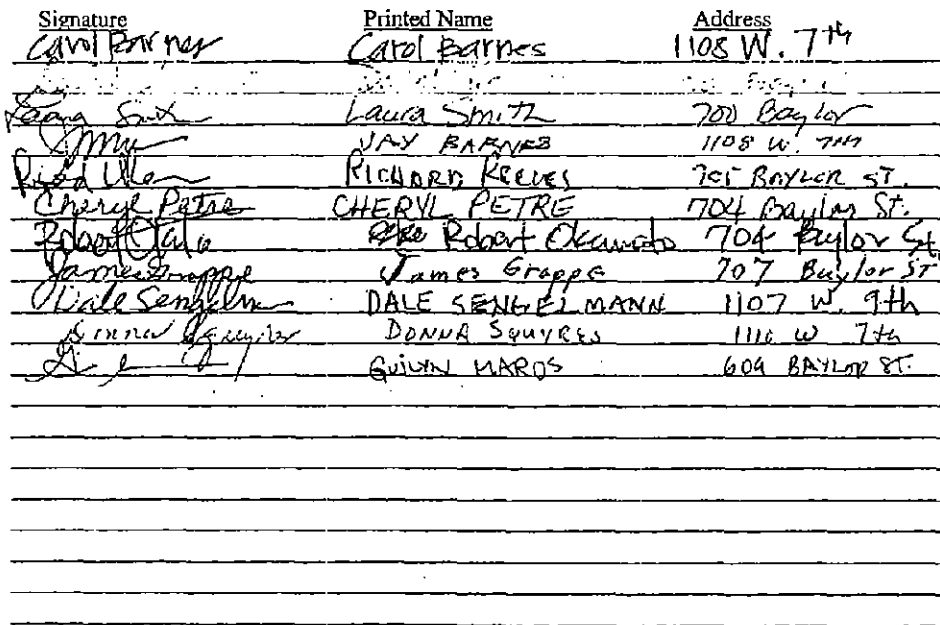 Signature Printed Name Address
Carol Barnes Carol Barnes 1108 W. 7th
Laura Smith Laura Smith 700 Baylor
JAY BARNES 1108 W. 7TH
RICHARD REEVES 705 BAYLOR ST.
Cheryl Petre CHERYL PETRE 704 Baylor St.
Robert Okamoto 704 Baylor St
James Grappe James Grappe 707 Baylor ST
Dale Sengelm DALE SENGELMANN 1107 W. 9th
Donna Squyres DONNA SQUYRES 1110 W 7th
GUILYN MAROS 609 BAYLOR ST.